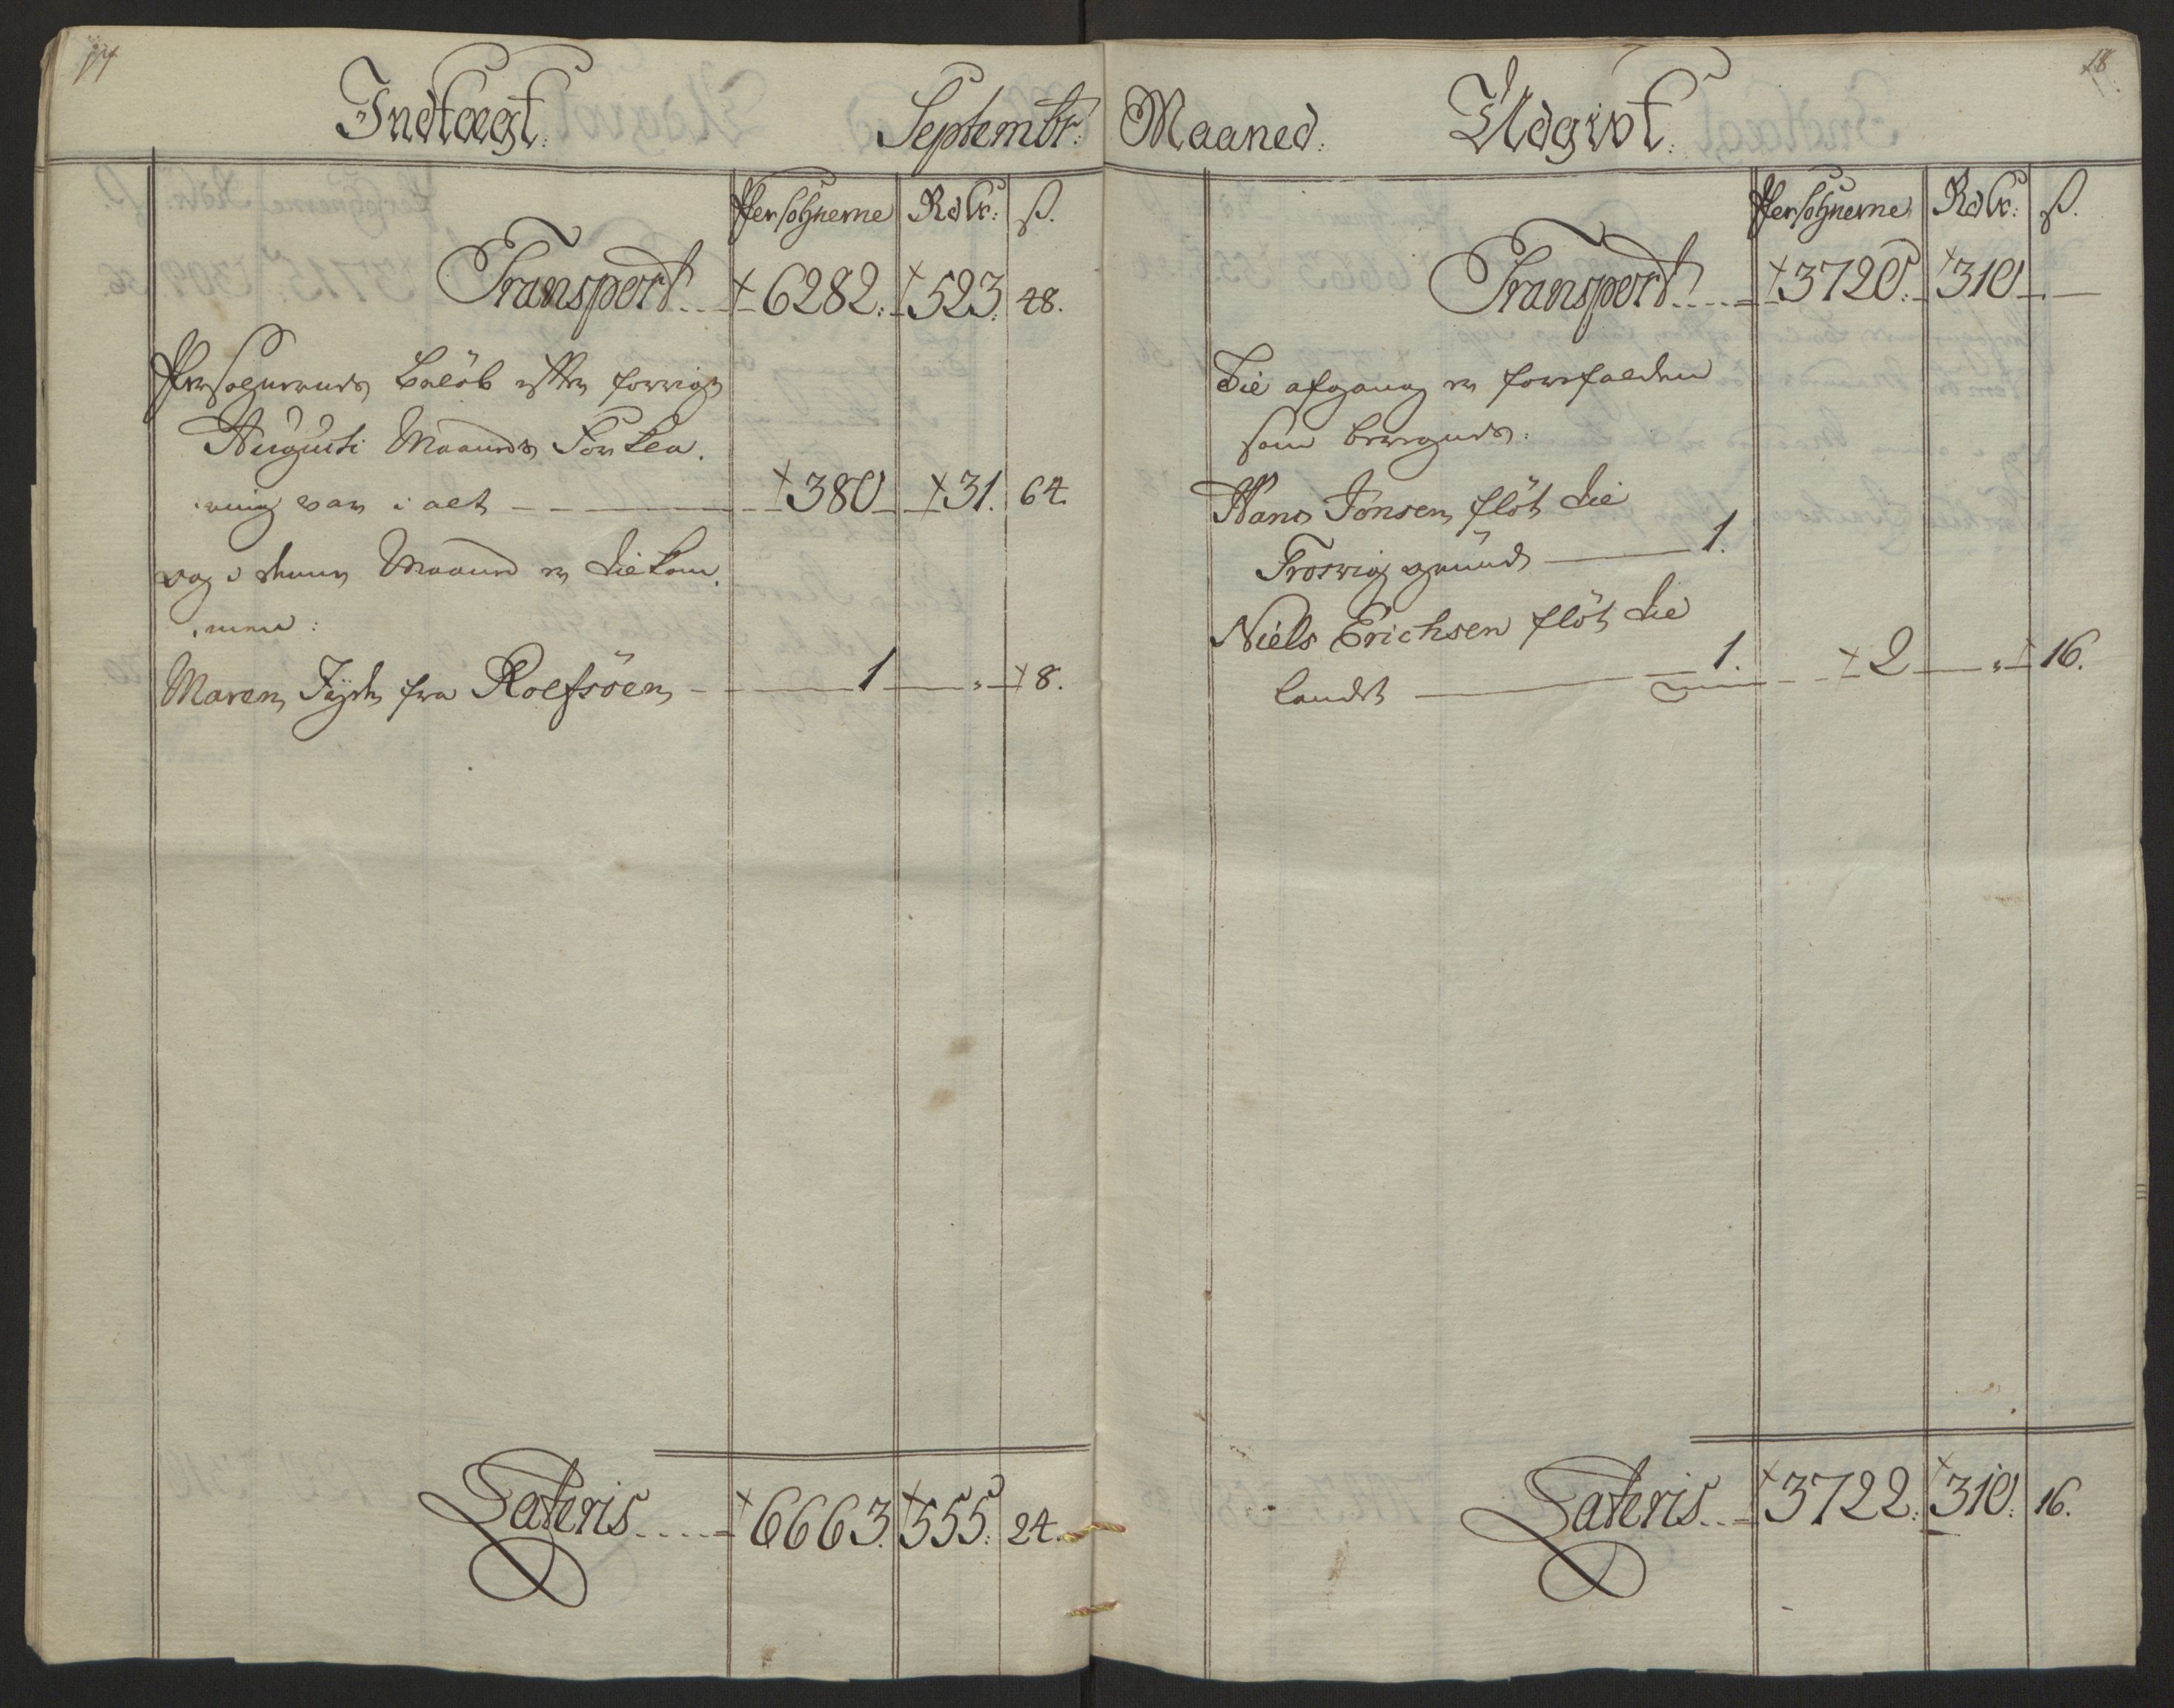 17
Indtægt.
Septembr:
Persohnerne Rdlr: ß.
Transport 6282. 523. 48.
Persohnernes Beløb efter forrige
Augusti Maaneds Forkla-
ring var i alt 380 31. 64.
og i denne Maaned er tilkom-
men:
Maren Jyde fra Roefsöen 1 " 8.
Lateris 6663. 555. 24.
18
Maaned. Udgivt.
Persohnerne Rdlr: ß.
Transport 3720. 310 —
Til afgang er forefalden
som beregnes:
Hans Jonsen fløt til
Froswig grund 1.
Niels Erichsen fløt til
landet 1. 2 " 16.
Lateris 3722. 310. 16.